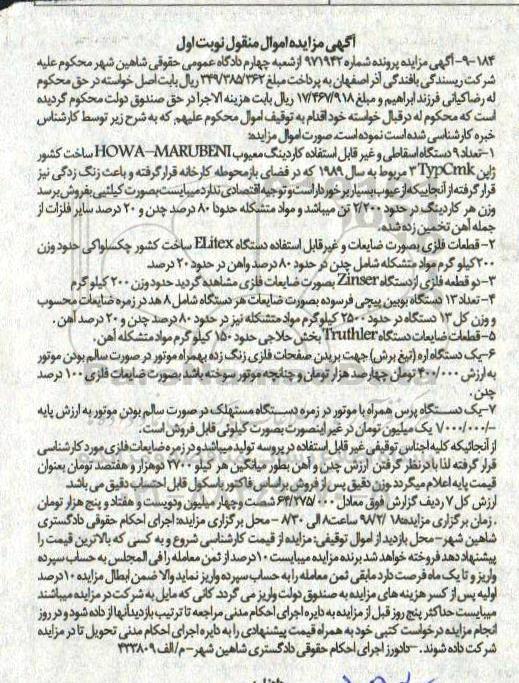 آگهی مزایده اموال منقول نوبت اول
۹-۱۸۴- آگهی مزایده پرونده شماره ۹۷۱۹۴۲ از شعبه چهارم دادگاه عمومی حقوقی شاهین شهر محکوم علیه
شرکت ریسندگی بافندگی آذر اصفهان به پرداخت مبلغ ۳۴۹/۳۸۵/۳۶۲ ریال بابت اصل خواسته در حق محکوم
له رضا کیانی فرزند ابراهیم و مبلغ ۱۷/۴۶۷/۹۱۸ ریال بابت هزینه الاجرا در حق صندوق دولت محکوم گردیده
است که محکوم له در قبال خواسته خود اقدام به توقیف اموال محکوم علیهم که به شرح زیر توسط کارشناس
خبره کارشناسی شده است نموده است. صورت اموال مزایده:
۱-تعداد ۹ دستگاه اسقاطی و غیر قابل استفاده کاردینگ معیوب HOWA-MARUBENI ساخت کشور
ژاپن TypCmk ۳ مربوط به سال ۱۹۸۹ که در فضای باز محوطه کارخانه قرار گرفته و باعث زنگ زدگی نیز
قرار گرفته از آنجاییکه از عیوب بسیار برخوردار است و توجیه اقتصادی ندارد میبایست بصورت کیلئیی بفروش برسد
وزن هر کاردینگ در حدود ۲/۲۰۰ تن میباشد و مواد متشکله حدودا ۸۰ درصد چدن و ۲۰ درصد سایر فلزات از
جمله آهن تخمین زده شده.
۲- قطعات فلزی بصورت ضایعات و غیر قابل استفاده دستگاه ELitex ساخت کشور چکسلواکی حدود وزن
۲۰۰ کیلو گرم مواد متشکله شامل چدن در حدود ۸۰ درصد واهن در حدود ۲۰ درصد
۳-دو قطعه فلزی از دستگاه Zinser بصورت ضایعات فلزی مشاهده گردید حدود وزن ۲۰۰ کیلو گرم
۴- تعداد ۱۳ دستگاه بوبین پیچی فرسوده بصورت ضایعات هر دستگاه شامل ۸ هد در زمره ضایعات محسوب
و وزن کل ۱۳ دستگاه در حدود ۲۵۰۰ کیلو گرم مواد متشکله نیز در حدود ۸۰ درصد چدن و ۲۰ درصد آهن.
۵-قطعات ضایعات دستگاه Truthler بخش حلاجی حدود ۱۵۰ کیلو گرم مواد متشکله آهن.
۶-یک دستگاه اره (تیغ برش) جهت بریدن صفحات فلزی زنگ زده بهمراه موتور در صورت سالم بودن موتور
به ارزش ۴۰۰/۰۰۰ تومان چهارصد هزار تومان و چنانچه موتور سوخته باشد بصورت ضایعات فلزی ۱۰۰ درصد
چدن.
۷-یک دستگاه پرس همراه با موتور در زمره دستگاه مستهلک در صورت سالم بودن موتور به ارزش پایه
-/۱/۰۰۰/۰۰۰ یک میلیون تومان در غیر اینصورت بصورت کیلوئی قابل فروش است.
از آنجائیکه کلیه اجناس توقیفی غیر قابل استفاده در پروسه تولید میباشد و در زمره ضایعات فلزی مورد کارشناسی
قرار گرفته لذا با در نظر گرفتن ارزش چدن و آهن بطور میانگین هر کیلو ۲۷۰۰ دوهزار و هفتصد تومان بعنوان
قیمت پایه اعلام میگردد وزن دقیق پس از فروش بر اساس فاکتور باسکول قابل احتساب دقیق می باشد
ارزش کل ۷ ردیف گزارش فوق معادل ۶۴/۲۷۵/۰۰۰ شصت و چهار میلیون و دویست و هفتاد و پنج هزار تومان
. زمان برگزاری مزایده: ۹۸/۲/۱۸ ساعت ۸ الی ۸/۳۰ – محل برگزاری مزایده: اجرای احکام حقوقی دادگستری
شاهین شهر-محل بازدید از اموال توقیفی: مزایده از قیمت کارشناسی شروع و به کسی که بالاترین قیمت را
پیشنهاد دهد فروخته خواهد شد برنده مزایده میبایست ۱۰درصد از ثمن معامله را فی المجلس به حساب سپرده
واریز و تا یک ماه فرصت دارد مابقی ثمن معامله را به حساب سپرده واریز نماید والا ضمن ابطال مزایده ۱۰درصد
اولیه پس از کسر هزینه های مزایده به صندوق دولت واریز می گردد. کانی که مایل به شرکت در مزایده میباشند
میبایست حداکثر پنج روز قبل از مزایده به دایره اجرای احکام مدنی مراجعه تا ترتیب بازدید آنها از داده شود و در روز
انجام مزایده درخواست کتبی خود به همراه قیمت پیشنهادی را به دایره اجرای احکام مدنی تحویل تا در مزایده
شرکت داده شوند. -دادورز اجرای احکام حقوقی دادگستری شاهین شهر-م/الف ۴۳۳۸۰۹